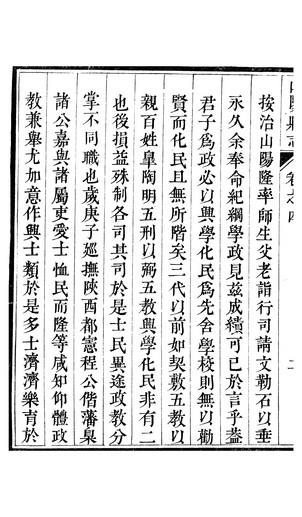 按治山陽隆率師生父老詣行司請文勒石以垂
永久余奉命紀綱學政見茲成績可已於言乎蓋
君子爲政必以興學化民爲先舍學校則無以勸
賢而化民且無所階矣三代以前如契敷五教以
親百姓皐陶明五刑以弼五教興學化民非有二
也後損益殊制各司其司於是士民異途政教分
掌不同職也歲庚子廵撫陝西都憲程公偕藩臬
諸公嘉與諸屬更愛士恤民而隆等咸知仰體政
教兼舉尤加意作興士類於是多士濟濟樂育於